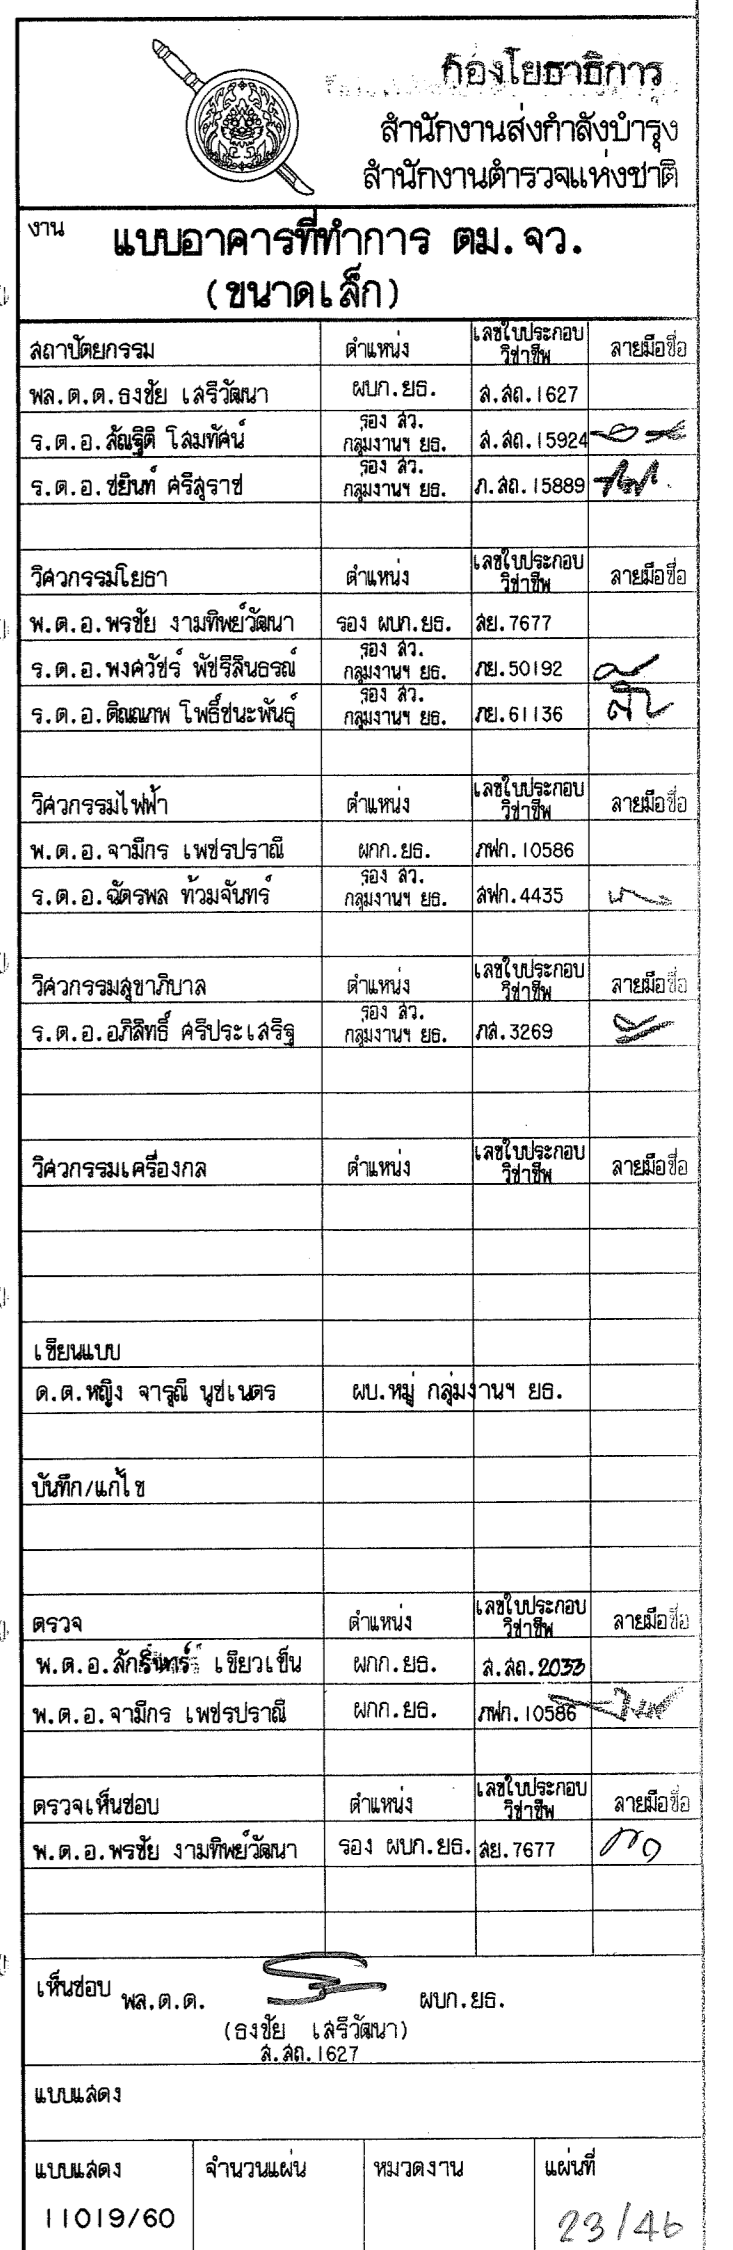 กองโยธาธิการ
สำนักงานส่งกำลังบำรุง
สำนักงานตำรวจแห่งชาติ
งาน แบบอาคารที่ทำการ ตม.จว.
(ขนาดเล็ก)
สถาปัตยกรรม ตำแหน่ง เลขใบประกอบวิชาชีพ ลายมือชื่อ
พล.ต.ต.ธงชัย เสรีวัฒนา ผบก.ยธ. ส.สถ.1627
ร.ต.อ.สัณฐิติ โสมทัศน์ รอง สว. กลุ่มงานฯ ยธ. ส.สถ.15924
ร.ต.อ.ชยินท์ ศรีสุราช รอง สว. กลุ่มงานฯ ยธ. ภ.สถ.15889
วิศวกรรมโยธา ตำแหน่ง เลขใบประกอบวิชาชีพ ลายมือชื่อ
พ.ต.อ.พรชัย งามทิพย์วัฒนา รอง ผบก.ยธ. สย.7677
ร.ต.อ.พงศวัชร์ พัชรีสินธรณ์ รอง สว. กลุ่มงานฯ ยธ. ภย.50192
ร.ต.อ.ติณณภพ โพธิ์ชนะพันธุ์ รอง สว. กลุ่มงานฯ ยธ. ภย.61136
วิศวกรรมไฟฟ้า ตำแหน่ง เลขใบประกอบวิชาชีพ ลายมือชื่อ
พ.ต.อ.จามีกร เพชรปราณี ผกก.ยธ. ภฟก.10586
ร.ต.อ.ฉัตรพล ท้วมจันทร์ รอง สว. กลุ่มงานฯ ยธ. สฟก.4435
วิศวกรรมสุขาภิบาล ตำแหน่ง เลขใบประกอบวิชาชีพ ลายมือชื่อ
ร.ต.อ.อภิสิทธิ์ ศรีประเสริฐ รอง สว. กลุ่มงานฯ ยธ. ภส.3269
วิศวกรรมเครื่องกล ตำแหน่ง เลขใบประกอบวิชาชีพ ลายมือชื่อ
เขียนแบบ
ด.ต.หญิง จารุณี นุชเนตร ผบ.หมู่ กลุ่มงานฯ ยธ.
บันทึก/แก้ไข
ตรวจ ตำแหน่ง เลขใบประกอบวิชาชีพ ลายมือชื่อ
พ.ต.อ. เขียวเข็น ผกก.ยธ. ส.สถ.2033
พ.ต.อ.จามีกร เพชรปราณี ผกก.ยธ. ภฟก.10586
ตรวจเห็นชอบ ตำแหน่ง เลขใบประกอบวิชาชีพ ลายมือชื่อ
พ.ต.อ.พรชัย งามทิพย์วัฒนา รอง ผบก.ยธ. สย.7677
เห็นชอบ พล.ต.ต. ผบก.ยธ.
(ธงชัย เสรีวัฒนา)
ส.สถ.1627
แบบแสดง
แบบแสดง จำนวนแผ่น หมวดงาน แผ่นที่
11019/60 23/46